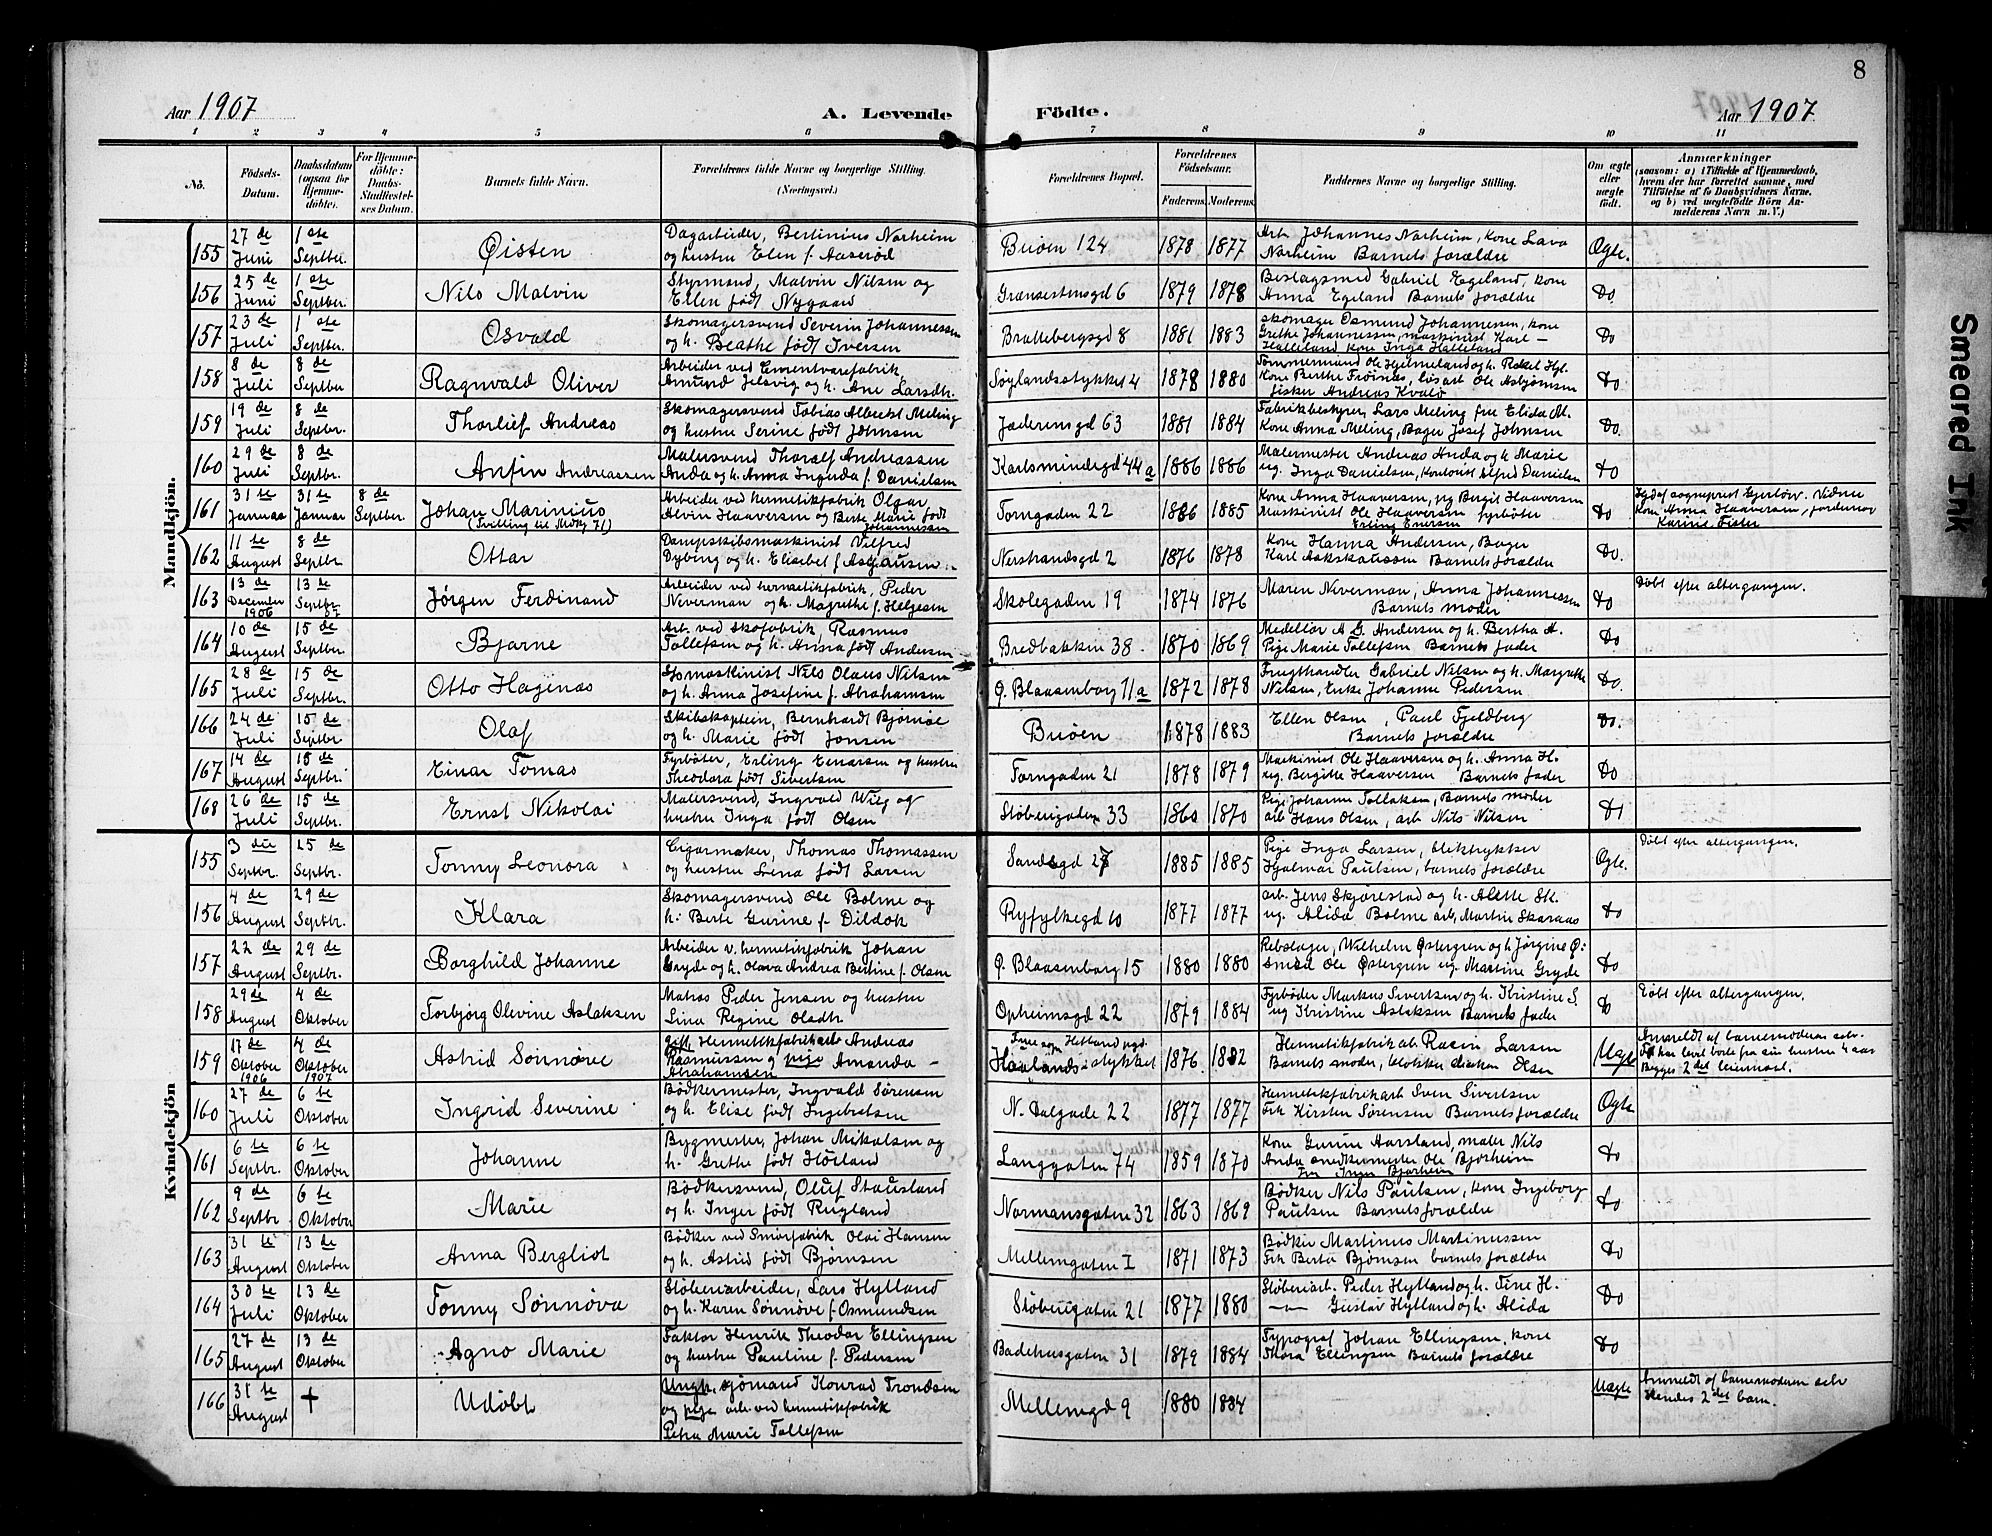 8
Aar 1907
A. Levende
Födte.
Aar 1907
1 2 3 4 5 6 7 8 9 10 11
No.
Födsels-Datum.
Daabsdatum (ogsaa for Hjemme-döbte).
For Hjemme-döbte: Daabs-Stadfæstel-ses Datum.
Barnets fulde Navn.
Forældrenes fulde Navne og borgerlige Stilling. (Næringsvei.)
Forældrenes Bopæl.
Forældrenes Födselsaar.
Faderens. Moderens.
Faddernes Navne og borgerlige Stilling.
Om ægte eller uægte födt.
Anmærkninger
(saasom: a) i Tilfælde af Hjemmedaab, hvem der har forrettet samme, med Tilföielse af to Daabsvidners Navne, og b) ved uægtefödte Börn An-melderens Navn m. V.)
Mandkjön.
155 27 de Juni 1 ste Septbr. Øisten Dagarbeider, Bertinius Norheim og hustru Elen f. Aaseröd Buöen 124 1878 1877 Arb. Johannes Norheim, Kone Lava Norheim Barnets forældre Ægte.
156 25 de Juni 1 ste Septbr. Nils Malvin Styrmand, Malvin Nilsen og Ellen født Nygaard Grænsestensgd 6 1879 1878 Beslagsmed Gabriel Egeland, kone Anna Egeland Barnets forældre Do.
157 23 de Juli 1 ste Septbr. Osvald Skomagersvend Severin Johannessen og h. Beathe født Iversen Brattebergsgd 8 1881 1883 Skomager Osmund Johannessen, kone Grethe Johannessen, maskinist Karl Halleland kone Inga Halleland Do
158 8 de Juli 8 de Septbr. Ragnvald Oliver Arbeider ved Cementvarefabrik Amund Jelsvig og h. Ane Larsdtr. Søylandsstykket 4 1878 1880 Tømmermand Ole Hjelmeland og h. Rakel Hjl. Kone Berthe Frøinæs, løsarb Ole Asbjørnsen fisker Andreas Kvalø Do.
159 19 de Juli 8 de Septbr. Thorlief Andreas Skomagersvend Tobias Albert Meling og hustru Serine født Johnsen Jæderensgd 63 1881 1884 Fabrikbestyrer Lars Meling fru Elida M. Kone Anna Meling, Bager Josef Johnsen Do.
160 29 de Juli 8 de Septbr. Anfin Andreassen Malersvend Thoralf Andreassen Anda og h. Anna Ingerda f. Danielsen Karlsmindegd 44 a 1886 1886 Malermester Andreas Anda og h. Marie ug. Inga Danielsen, Kontorist Alfred Danielsen Do
161 31 te Januar 31 te Januar 8 de Septbr. Johan Marinius (Tvilling til 71) Arbeider ved hermetikfabrik Olgar Alvin Haaversen og Berte Marie født Johannessen Torngaden 22 1886 1885 Kone Anna Haaversen, pg Bergit Haaversen Maskinist Ole Haaversen fyrbøter Erling Enersen Do sogneprest Gjerlöw. Vidne Kone Anna Haaversen, jordemor Karine Fister
162 11 te August 8 de Septbr Ottar Dampskibsmaskinist Vilfred Dybing og h. Elisabet f. Nerstrandsgd 2 1876 1878 Kone Hanna Andersen, Bager Karl Barnets forældre Do.
163 13 de December 1906 13 de Septbr. 07 Jørgen Ferdinand Arbeider ved hermetikfabrik, Peder Neverman og h. Magrethe f. Helgesen Skolegaden 19 1874 1876 Maren Neverman, Anna Johannessen Barnets moder Do Døbt efter altergangen.
164 10 de August 15 de Septbr. Bjarne Arb. ved skofabrik, Rasmus Tollefsen og h. Anna født Andersen Bredbakken 38 1870 1869 A. G. Andersen og h. Bertha A. Pige Marie Tollefsen Barnets fader Do
165 28 de Juli 15 de Septbr. Otto Hagenas Nils Olaus Nilsen og h. Anna Josefine f. Abrahamsen Ø. Blaasenborg 11 a 1872 1878 Frugthandler Gabriel Nilsen og h. Margrethe Nilsen, Enke Johanne Pedersen Do.
166 24 de Juli 15 de Septbr. Olaf Skibskaptein, Bernhardt Bjørnøe og h. Marie født Jonsen Buöen 1878 1883 Ellen Olsen, Paul Fjeldberg Barnets forældre Do.
167 14 de August 15 de Septbr. Einar Tomas Fyrbøter, Erling Enarsen og hustru Theodora født Sivertsen Torngaden 21 1878 1879 Maskinist Ole Haaversen og h. Anna H. ug. Bergitte Haaversen Barnets fader Do
168 26 de Juli 15 de Septbr. Ernst Nikolai Malersvend, Ingvald Wiig og hustru Inga født Olsen Støberigaden 33 1860 1870 Pige Johanne Tollaksen, Barnets moder arb Hans Olsen, arb Nils Nilsen Do
Kvindekjön
155 3 die Septbr. 25 de Septbr. Tonny Leonora Cigarmaker, Thomas Thomassen og hustru Lina født Larsen Sandsgd 27 1885 1885 Pige Inga Larsen, bliktrykker Hjalmar Paulsen, barnets forældre Ægte. Døbt efter altergangen.
156 4 de August 29 de Septbr Klara Skomagersvend Ole Bolme og h: Berte Gurine f. Ryfylkegd 10 1877 1877 arb. Jens Skjørestad og h. Alette Sk. ug. Alida Bolme arb, Martin Skaraas Do
157 22 de August 29 de Septbr. Borghild Johanne Arbeider v. hermetikfabrik Johan Gryde og h. Olava Andrea Bertine f. Olsen Ø. Blaasenborg 15 1880 1880 Rebslager, Wilhelm Østergren og h Jørgine Ø: Smed Ole Østergren ug. Martine Gryde Do
158 29 de August 4 de Oktober Torbjørg Olevine Aslaksen Matros Peder Jensen og hustru Lina Regine Olsdtr Opheimsgd 22 1879 1884 Fyrbøder Markus Sivertsen og h. Kristine S. ug Kristine Aslaksen Barnets fader Do Døbt efter altergangen.
159 17 de Oktober 1906 4 de Oktober 1907 Astrid Sønnøve gift Hermetikfabrikarb Andreas Rasmussen og pige Amanda Abrahamsen stykket 1876 1882 Hermetikfabrik arb. Rasin Larsen Barnets moder, Olsen Uægte Anmeldt af barnemoderen selv. har levet borte fra sin hustru 4 aar Begges 2det leiermaal.
160 27 de Juli 6 te Oktober Ingrid Severine Bødkermester, Ingvald Sørensen og h. Elise født Ingebretsen N. Dalgade 22 1877 1877 Hermetikfabrikarb Sven Sivertsen Frk Kirsten Sørensen Barnets forældre Ægte
161 6 te Septbr. 6 te Oktober Johanne Bygmester, Johan Mikalsen og h. Grethe født Høiland Langgaten 74 1859 1870 Kone Gurine Aarsland, maler Nils Anda snedkermester Ole Bjorheim Fru Inga Bjorheim Do
162 9 de Septbr 6 te Oktober Marie Bødkersvend, Oluf Stausland og h. Inger født Rugland Normansgaten 32 1863 1869 Bødker Nils Paulsen, kone Ingeborg Paulsen Barnets forældre Do
163 31 te August 13 de Oktober Anna Bergliot Bødker ved Smørfabrik Olai Hansen og h. Astrid født Bjørnsen Mellemgaten I 1871 1873 Bødker Martinus Martinussen Frk Berta Bjørnsen barnets forældre Do
164 30 te Juli 13 de Oktober Tonny Sønnøva Støberiarbeider, Lars Hylland og h. Karen Sønnøve f. Osmundsen Støberigaten 21 1877 1880 Støberiarb. Peder Hylland og h. Tine H. —"— Gustav Hylland og h. Alida Do
165 27 de August 13 de Oktober Agno Marie Faktor Henrik Theodor Ellingsen og hustru Pauline f. Pedersen Badehusgaten 31 1879 1884 Typograf Johan Ellingsen, kone Thora Ellingsen Barnets forældre Do
166 31 te August + Udøbt Ungk. sjømand Konrad Trondsen og pige arb. ved hermetikfabrik Petra Marie Tollefsen Mellemgd 9 1880 1884 Uægte Anmeldt af barnemoderen selv Hendes 2det barn.
Smeared Ink